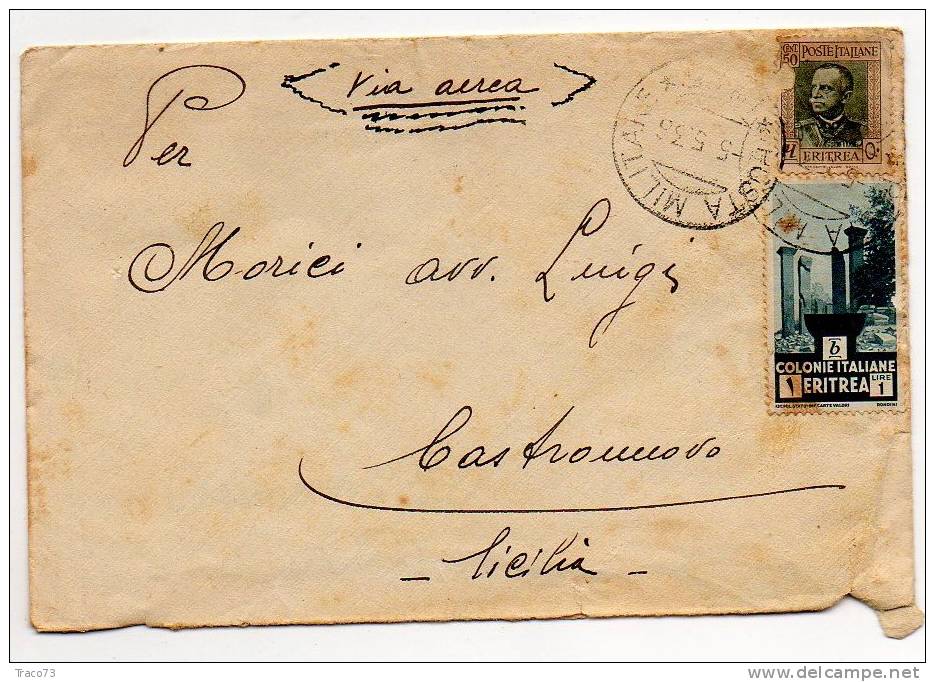 Via aerea
Per
Morici avv. Luigi
Castronuovo
- Sicilia -
POSTA MILITARE
5.5.36
CENT 50
POSTE ITALIANE
ERITREA
b
COLONIE ITALIANE
1 ERITREA LIRE 1
Traco73
delcampe.net